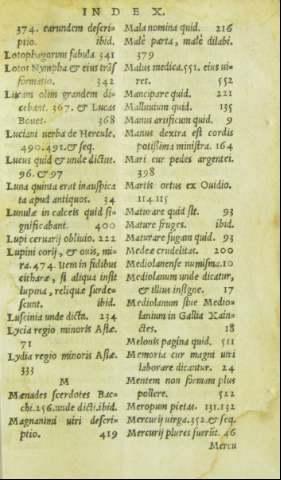 INDEX.
374. earundem descri-
ptio. ibid.
Lotophagorum fabula. 341
Lotos Nympha & eius trãs
formatio. 342
Lucam olim grandem di-
cebant. 367. & Lucas
Boues. 368
Luciani uerba de Hercule.
490. 491. & seq.
Lucus quid & unde dictus.
96. & 97
Luna quinta erat inauspica
ta apud antiquos. 34
Lunulæ in calceis quid si-
gnificabant. 400
Lupi ceruarij obliuio. 222
Lupini corij, & ouis, mi-
ra. 474. Item in fidibus
citharæ, si aliqua insit
lupina, reliquæ surde-
scunt. ibid.
Luscinia unde dicta. 234
Lycia regio minoris Asiæ.
71
Lydia regio minoris Asiæ.
333
M
Mænades sacerdotes Bac-
chi. 256. unde dictæ. ibid.
Magnanimi uiri descri-
ptio. 419
Mala nomina quid. 216
Malè parta, malè dilabi.
379
Malus medica. 551. eius ui-
ret. 552
Mancipare quid. 221
Malluuium quid. 135
Manus artificum quid. 9
Manus dextra est cordis
potissima ministra. 164
Mari cur pedes argentei.
398
Martis ortus ex Ouidio.
114. 115
Maturare quid sit. 93
Mature fruges. ibid.
Maturare fugam quid. 93
Medeæ crudelitas. 200
Mediolanense numisma. 10
Mediolanum unde dicatur,
& illius insigne. 17
Mediolanum siue Medio-
lanium in Gallia Xain-
ctes. 18
Melonis pagina quid. 511
Memoria cur magni uiri
laborare dicantur. 24
Mentem non formam plus
pollere. 522
Meropum pietas. 131. 132
Mercurij uirga. 352. & seq.
Mercurij plures fuerũt. 46
Mercu